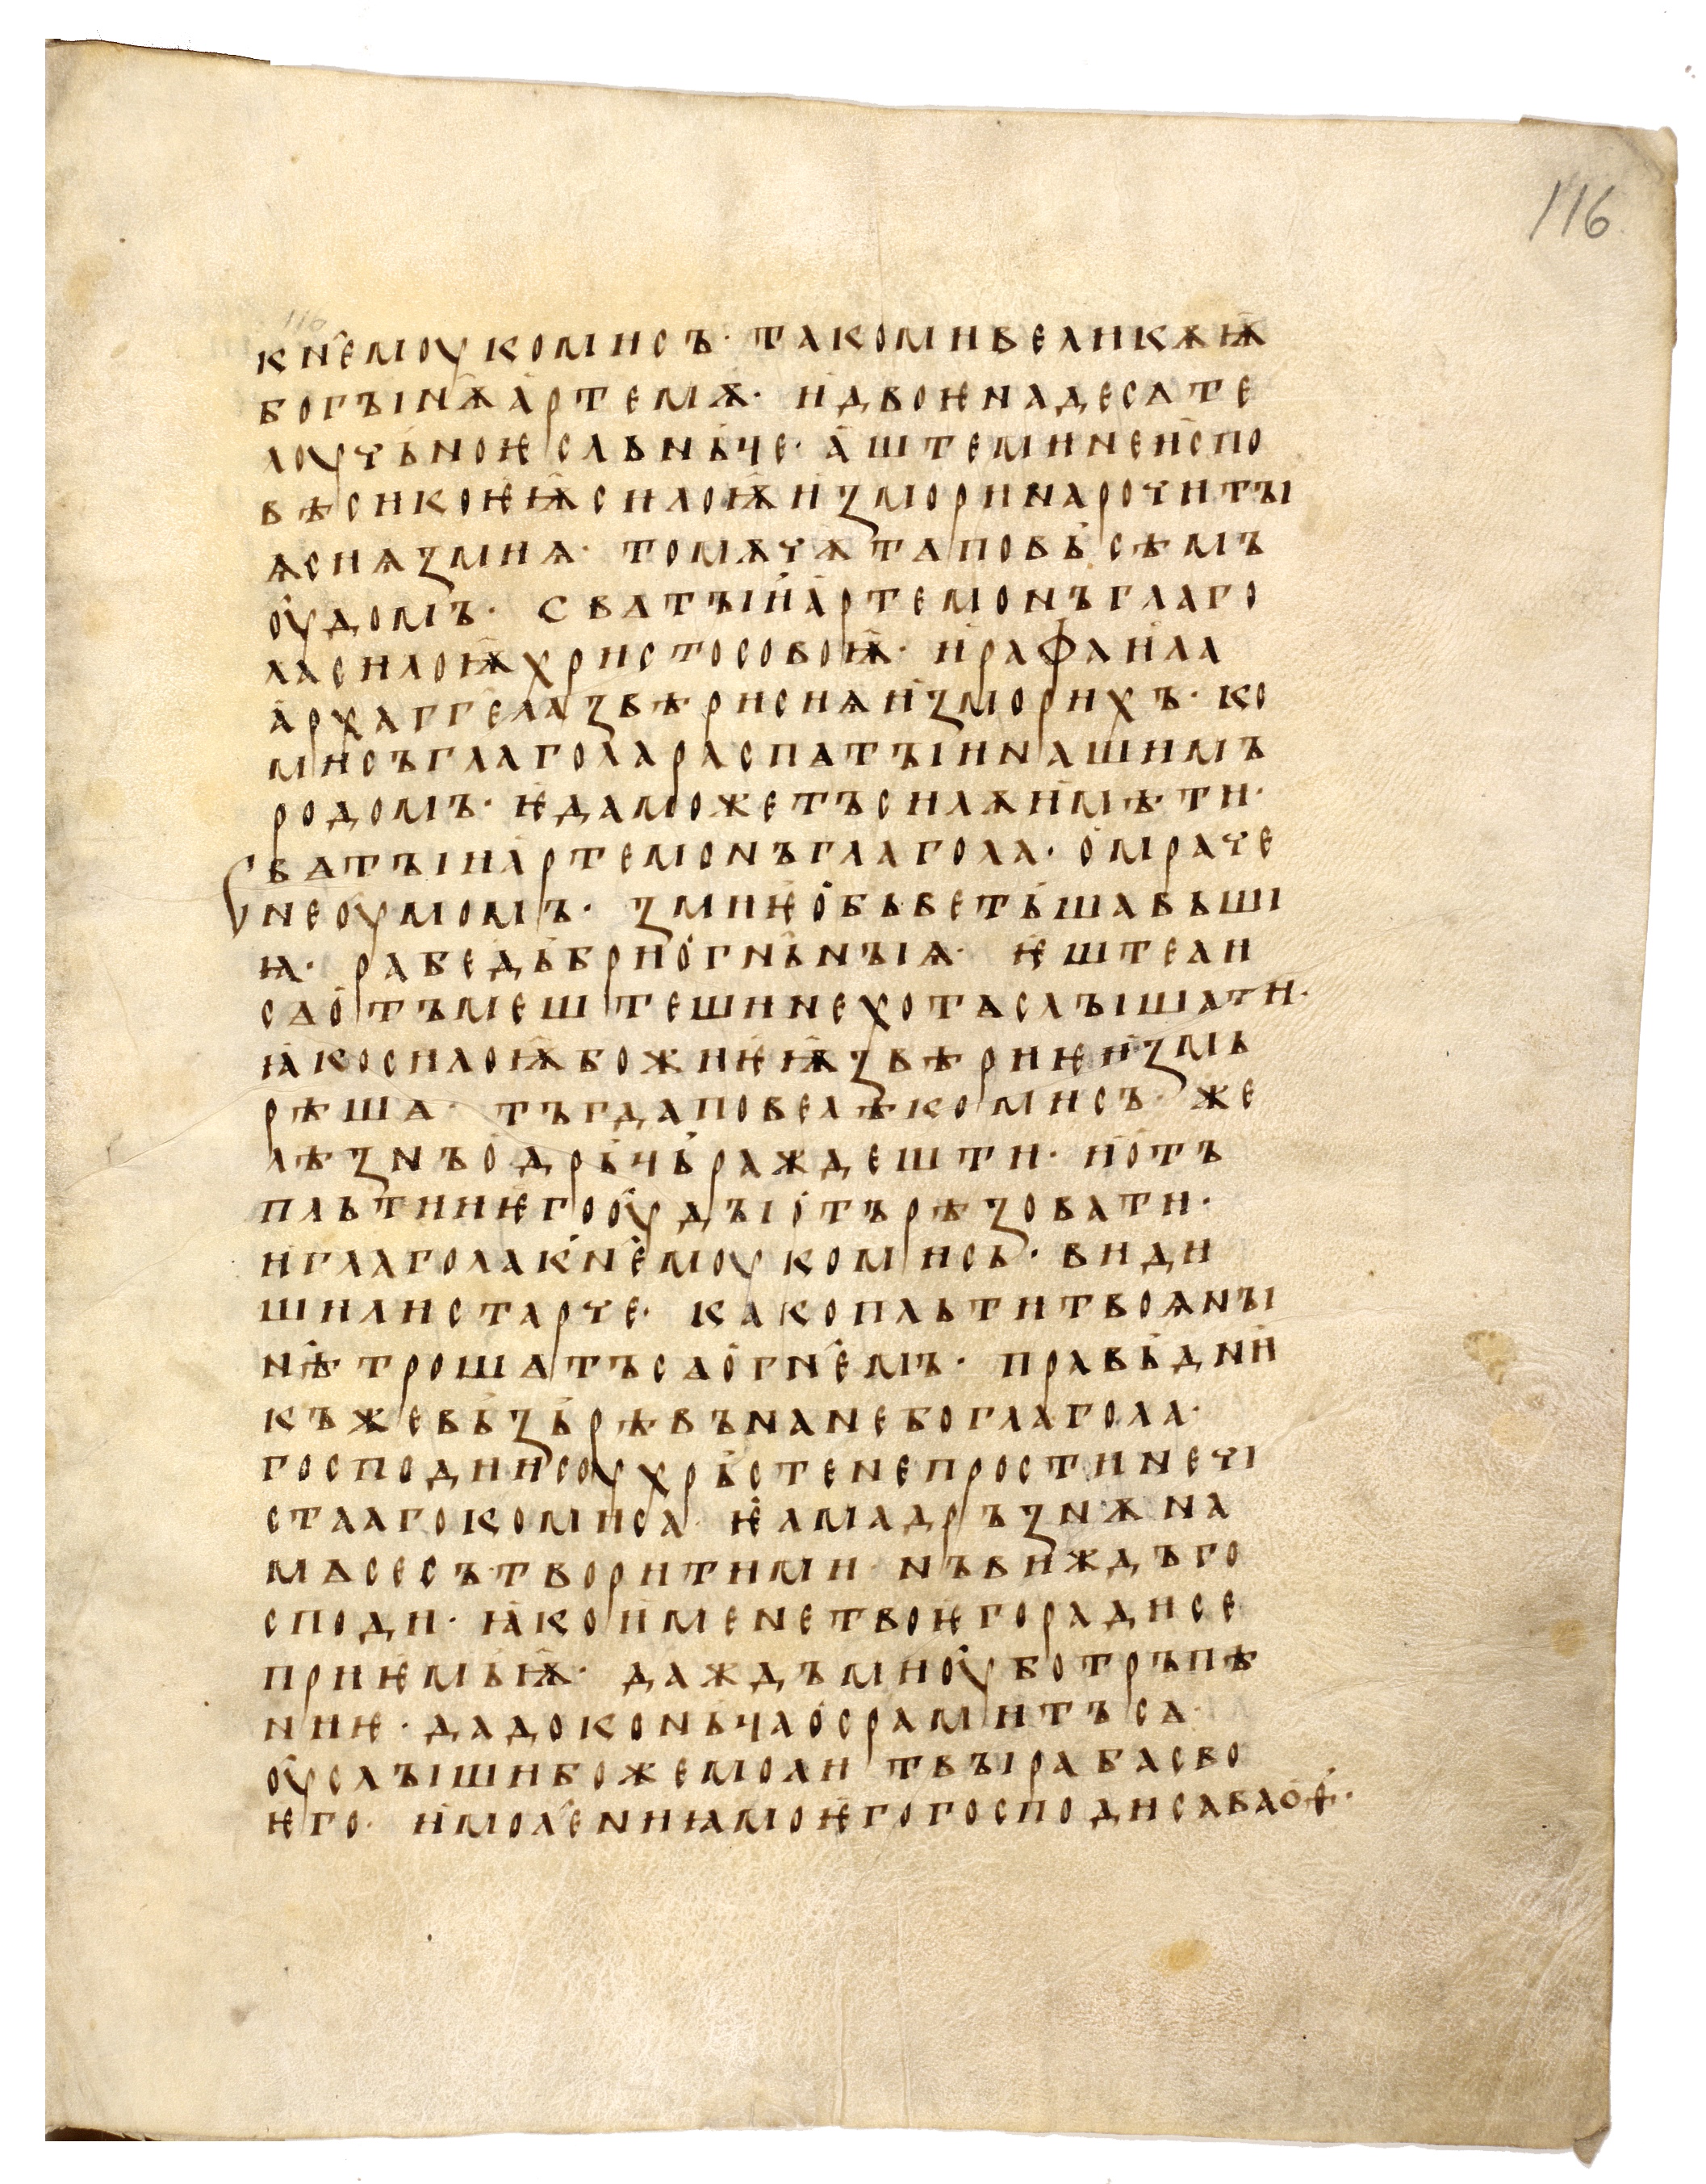 116
116
кн҄емоу комисъ· тако ми великѫѭ
богꙑнѭ артемѫ· и двоѥнадесѧте
лоучьноѥ слъньче· аште ми не испо
вѣси коѥѭ силоѭ измори нарочитꙑ
ѩ сиѩ змиѩ· то мѫчѫ тѧ по вьсѣмъ
оудомъ· свѧтꙑи артемонъ глаго
ла силоѭ христосовоѭ· и рафаила
архаггела звѣри сиѩ изморихъ· ко
мисъ глагола распѧтꙑи нашимъ
родомъ· ѥда можетъ силѫ имѣти·
Свѧтꙑи артемонъ глагола· о мраче
не оумомъ· змиѥ обьветъшавъши
ꙗ· рабе дьбри огньнꙑѩ· ѥште ли
сѧ отъмештеши не хотѧ слꙑшати·
ꙗко силоѭ божиѥѭ звѣриѥ измь
рѣша· тъгда повелѣ комисъ· же
лѣзнъ одрьць раждешти· и отъ
плъти и ѥго оудꙑ отърѣзовати·
и глагола кн҄емоу комисъ· види
ши ли старче· како плъти твоѩ нꙑ
нѣ трошѧтъсѧ огн҄емъ· правьдьни
къ же възьрѣвъ на небо глагола·
господи исоу хрьсте не прости нечи
стааго комиса· ѥлма дръзнѫ на
мѧ се сътворити ми· нъ виждъ го
споди· ꙗко имене твоѥго ради се
приѥмьѭ· даждъ ми оубо тръпѣ
ниѥ· да до коньца осрамитъсѧ·
оуслꙑши боже молитвꙑ раба сво
ѥго· и мол҄ениꙗ моѥго господи саваоѳ·